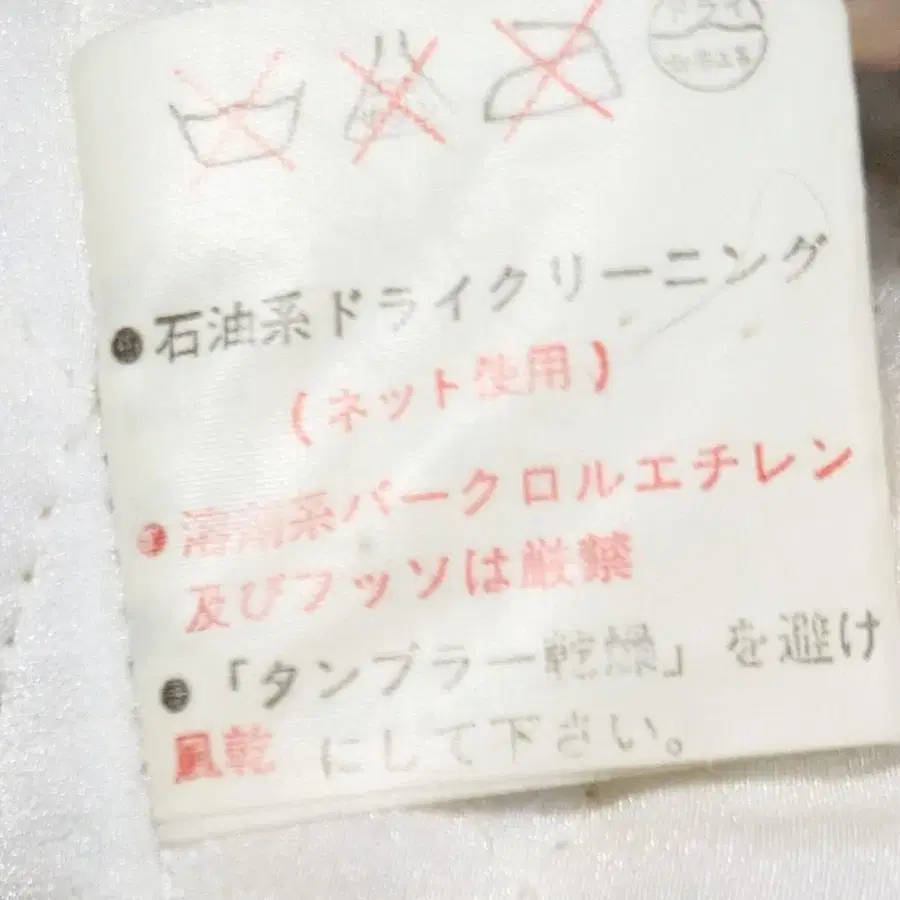 ドライ
●石油系ドライクリーニング
(ネット使用)
●系パークロルエチレン
及びフッソは厳禁
●「タンブラー乾燥」を避け
風乾にして下さい。